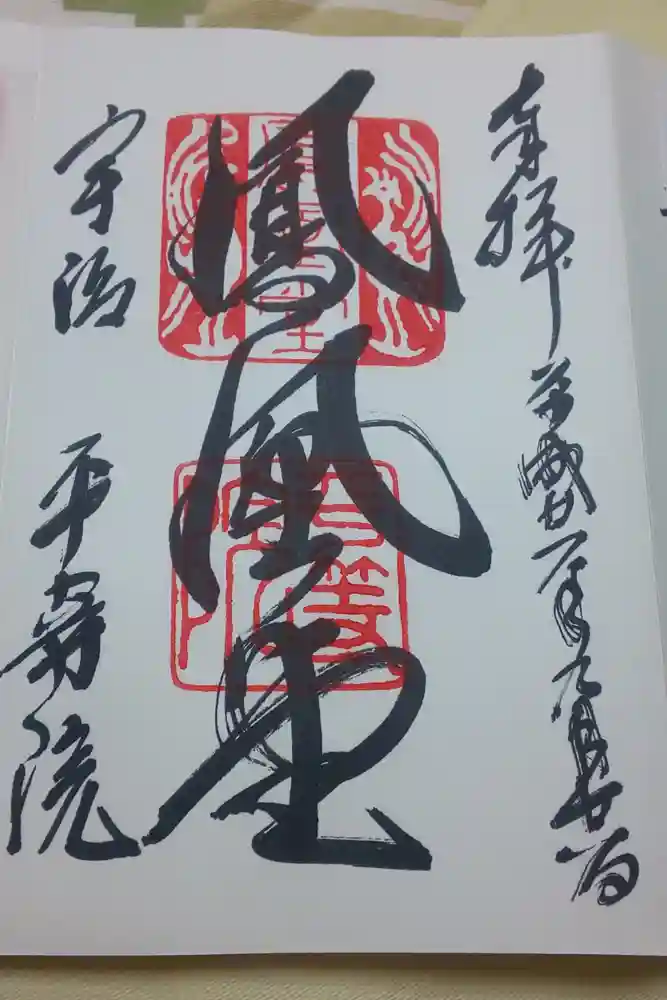 奉拝 平成廿一年九月廿一日
鳳凰堂
宇治 平等院